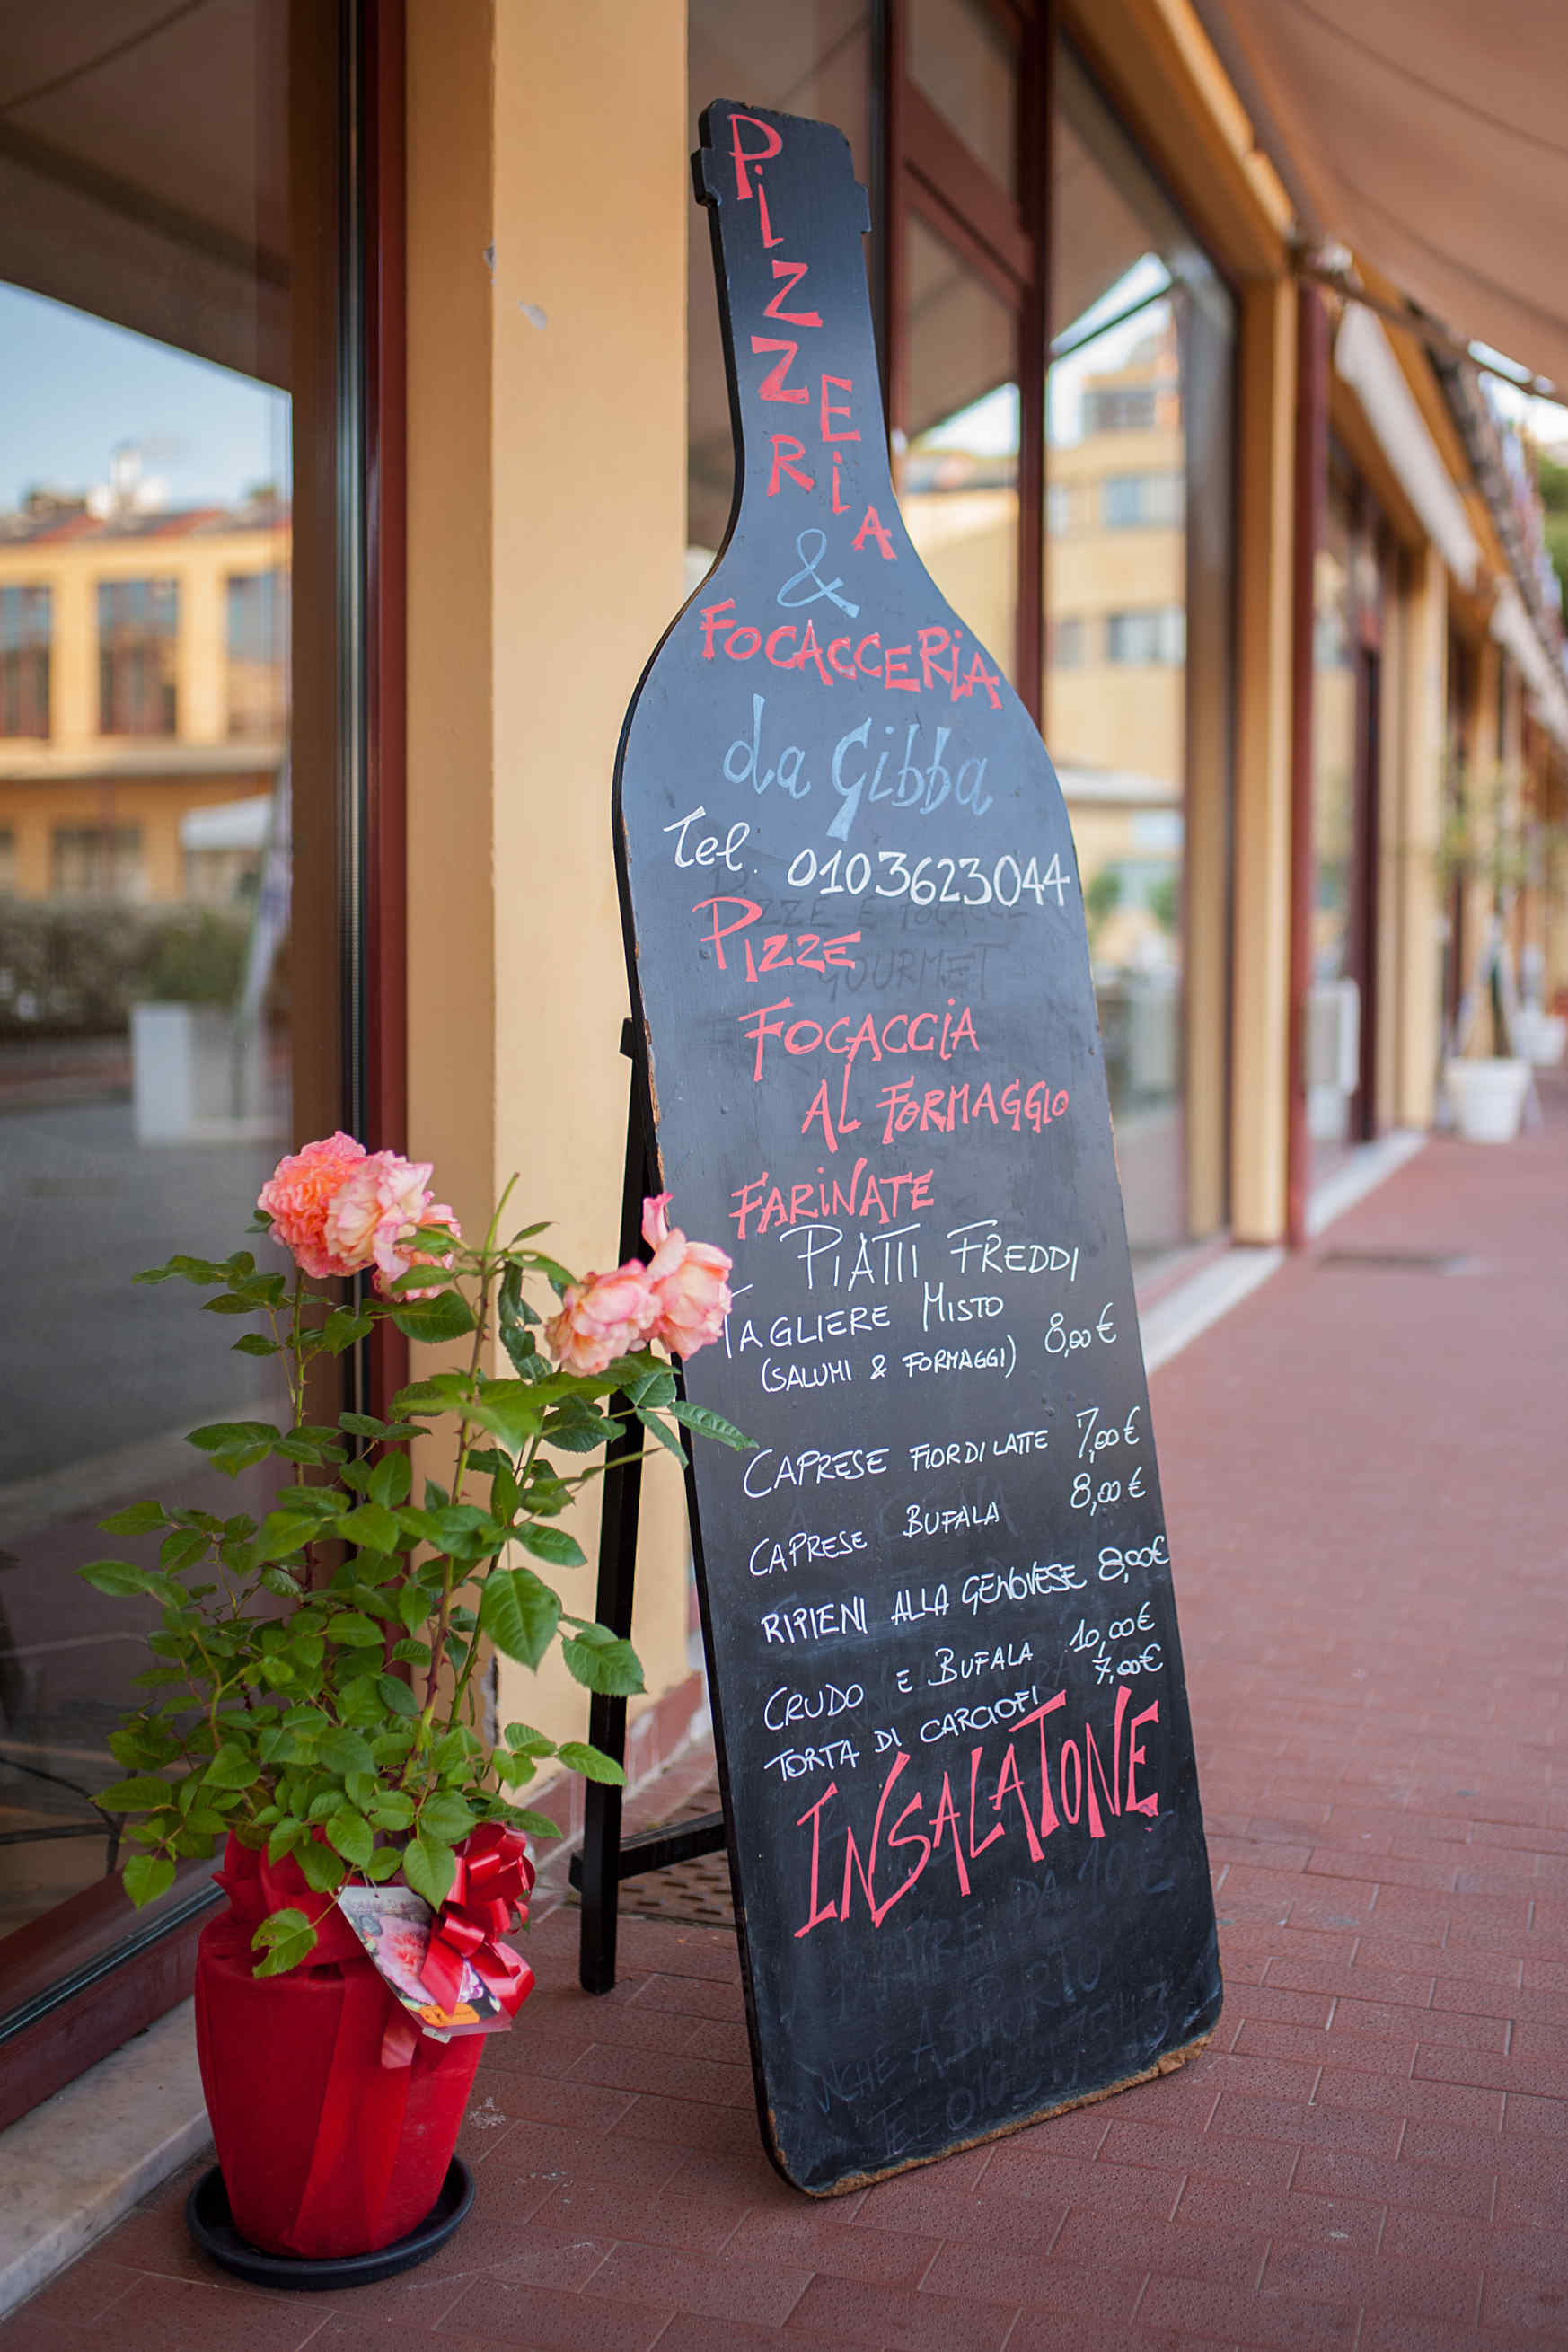 PiZZERiA
&
FOCACCERiA
da Gibba
Tel. 0103623044
PIZZE
GOURMET
FOCACCiA
AL FORMAGGIO
FARiNATE
PIATTI FREDDI
TAGLIERE MISTO
(SALUMI & FORMAGGI) 8,00€
CAPRESE FIORDILATTE 7,00€
CAPRESE BUFALA 8,00€
RIPIENI ALLA GENOVESE 8,00€
CRUDO E BUFALA 10,00€
TORTA DI CARCIOFI 7,00€
INSALATONE
DA 10€